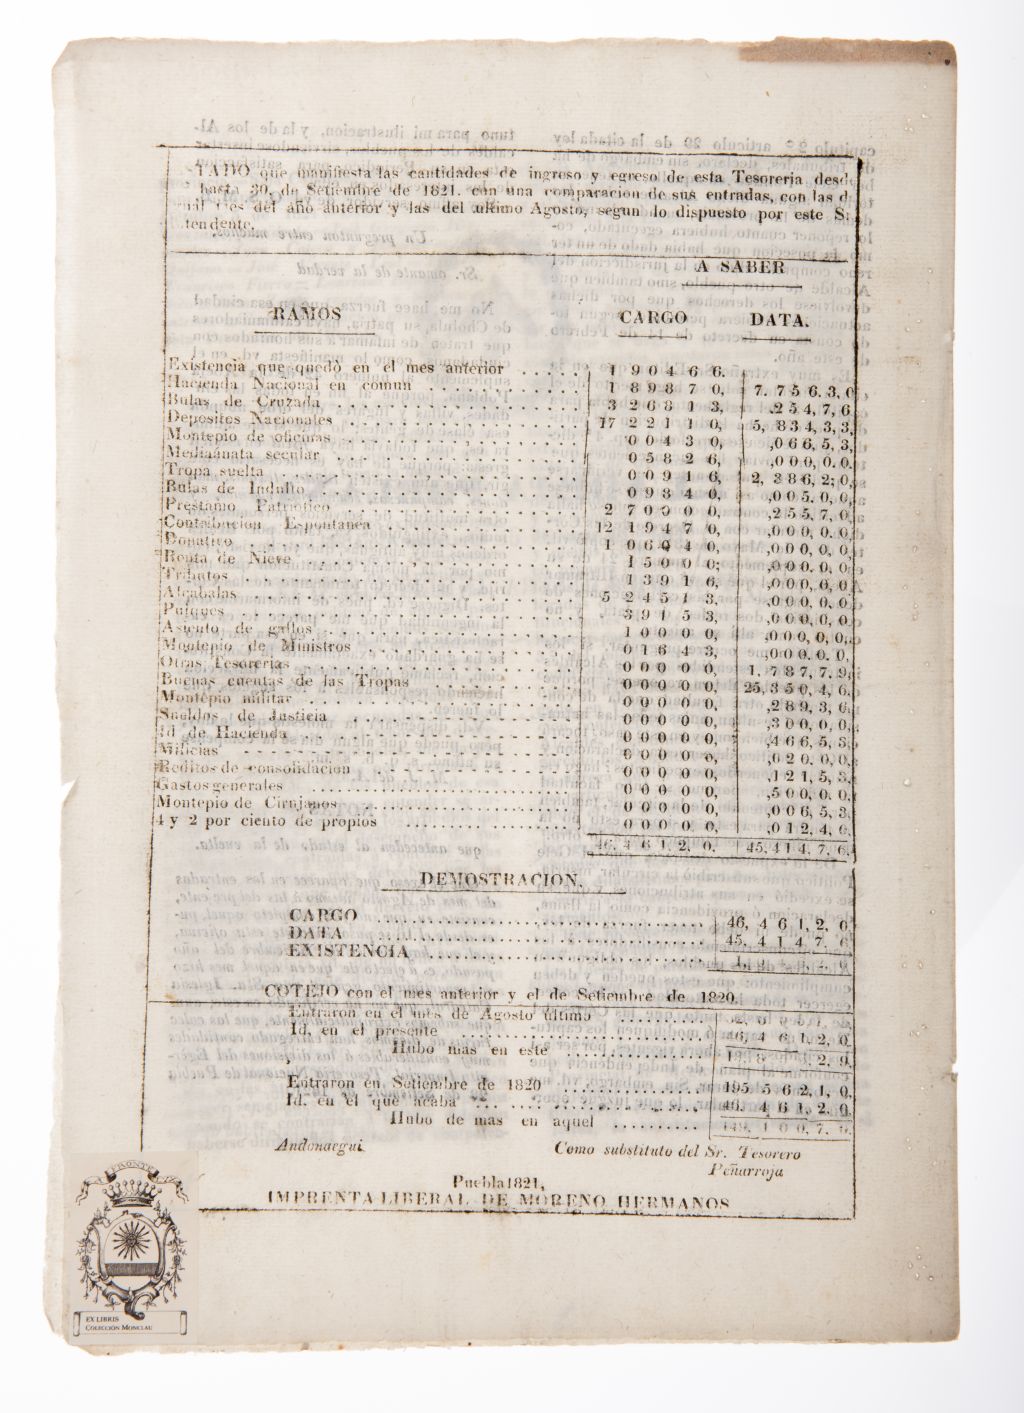 TADO que manifiesta las cantidades de ingreso y egreso de esta Tesoreria desd
hasta 30, de Setiembre de 1821. con una comparacion de sus entradas, con las d
del año anterior y las del ultimo Agosto, segun lo dispuesto por este S.
tendente.
A SABER
RAMOS CARGO DATA.
Existencia que quedó en el mes anterior ..... 1 9 0 4 6 6.
Hacienda Nacional en comun 1 8 9 8 7 0, 7. 7 5 6. 3, 0
Bulas de Cruzada 3 2 6 8 1 3, ,2 5 4, 7, 6
Depositos Nacionales 17 2 2 1 1 0, 5, 8 3 4, 3, 3,
Montepio de oficinas 0 0 4 3 0, ,0 6 6, 5, 3,
Mediaanata secular 0 5 8 2 6, ,0 0 0, 0. 0.
Tropa suelta 0 0 9 1 6, 2, 3 8 6, 2; 0,
Bulas de Indulto 0 9 8 4 0, ,0 0 5. 0, 0,
Prestamo Patriotico 2 7 0 0 0 0, ,2 5 5, 7, 0,
Contribucion Espontanea 12 1 9 4 7 0, ,0 0 0, 0. 0,
Donativo 1 0 6 0 4 0, ,0 0 0, 0, 0,
Renta de Nieve 1 5 0 0 0; ,0 0 0, 0, 0,
Tributos 1 3 9 1 6, ,0 0 0, 0, 0,
Alcabalas 5 2 4 5 1 3, ,0 0 0, 0, 0
Pulques 3 9 1 5 3, ,0 0 0, 0, 0,
Asiento de gallos 1 0 0 0 0, ,0 0 0, 0, 0,
Montepio de Ministros 0 1 6 4 3, ,0 0 0. 0. 0,
Otras Tesorerias 0 0 0 0 0, 1, 7 8 7, 7, 9,
Buenas cuentas de las Tropas 0 0 0 0 0, 25, 3 5 0, 4, 6,
Montepio militar 0 0 0 0 0, ,2 8 9, 3, 6,
Sueldos de Justicia 0 0 0 0 0, ,3 0 0, 0, 0,
Id de Hacienda 0 0 0 0 0, ,4 6 6, 5, 3,
Milicias 0 0 0 0 0, ,0 2 0. 0, 0,
Reditos de consolidacion 0 0 0 0 0, ,1 2 1, 5, 3,
Gastos generales 0 0 0 0 0, ,5 0 0, 0, 0,
Montepio de Cirujanos 0 0 0 0 0, ,0 0 6, 5, 3,
4 y 2 por ciento de propios 0 0 0 0 0, ,0 1 2, 4, 6,
46, 4 6 1, 2, 0, 45, 4 1 4, 7, 6,
DEMOSTRACION.
CARGO 46, 4 6 1, 2, 0
DATA 45, 4 1 4 7, 6
EXISTENCIA
COTEJO con el mes anterior y el de Setiembre de 1820.
Entraron en el mes de Agosto ultimo
Id. en el presente 46, 4 6 1, 2, 0,
Hubo mas en este
Entraron en Setiembre de 1820 195 5 6 2, 1, 0,
Id. en el que acaba 46, 4 6 1, 2, 0,
Hubo de mas en aquel 149, 1 0 0, 7, 0,
Andonaegui Como substituto del Sr. Tesorero
Peñarroja
Puebla 1821,
IMPRENTA LIBERAL DE MORENO HERMANOS
EX LIBRIS
COLECCIÓN MONCLAU